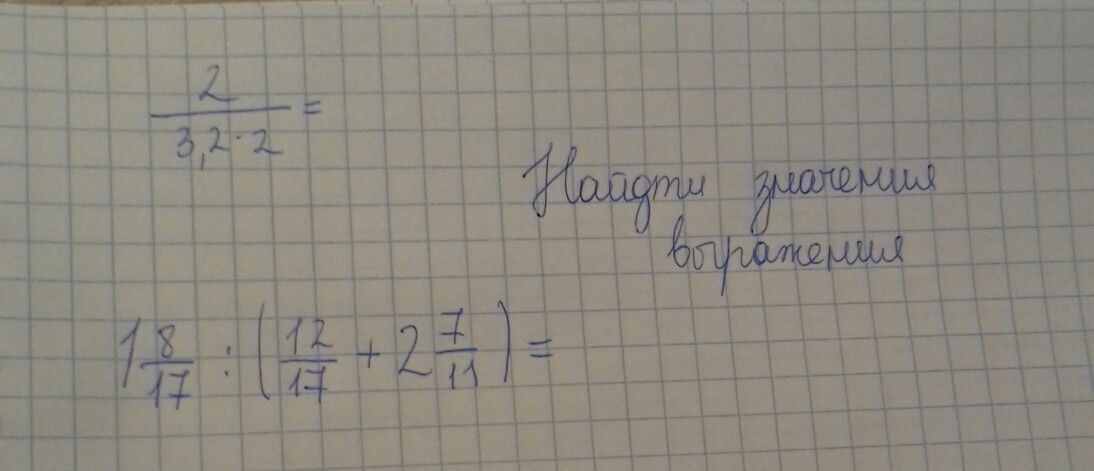 2/(3,2·2) =
Найдти значения
выражения
1 8/17 : (12/17 + 2 7/11) =